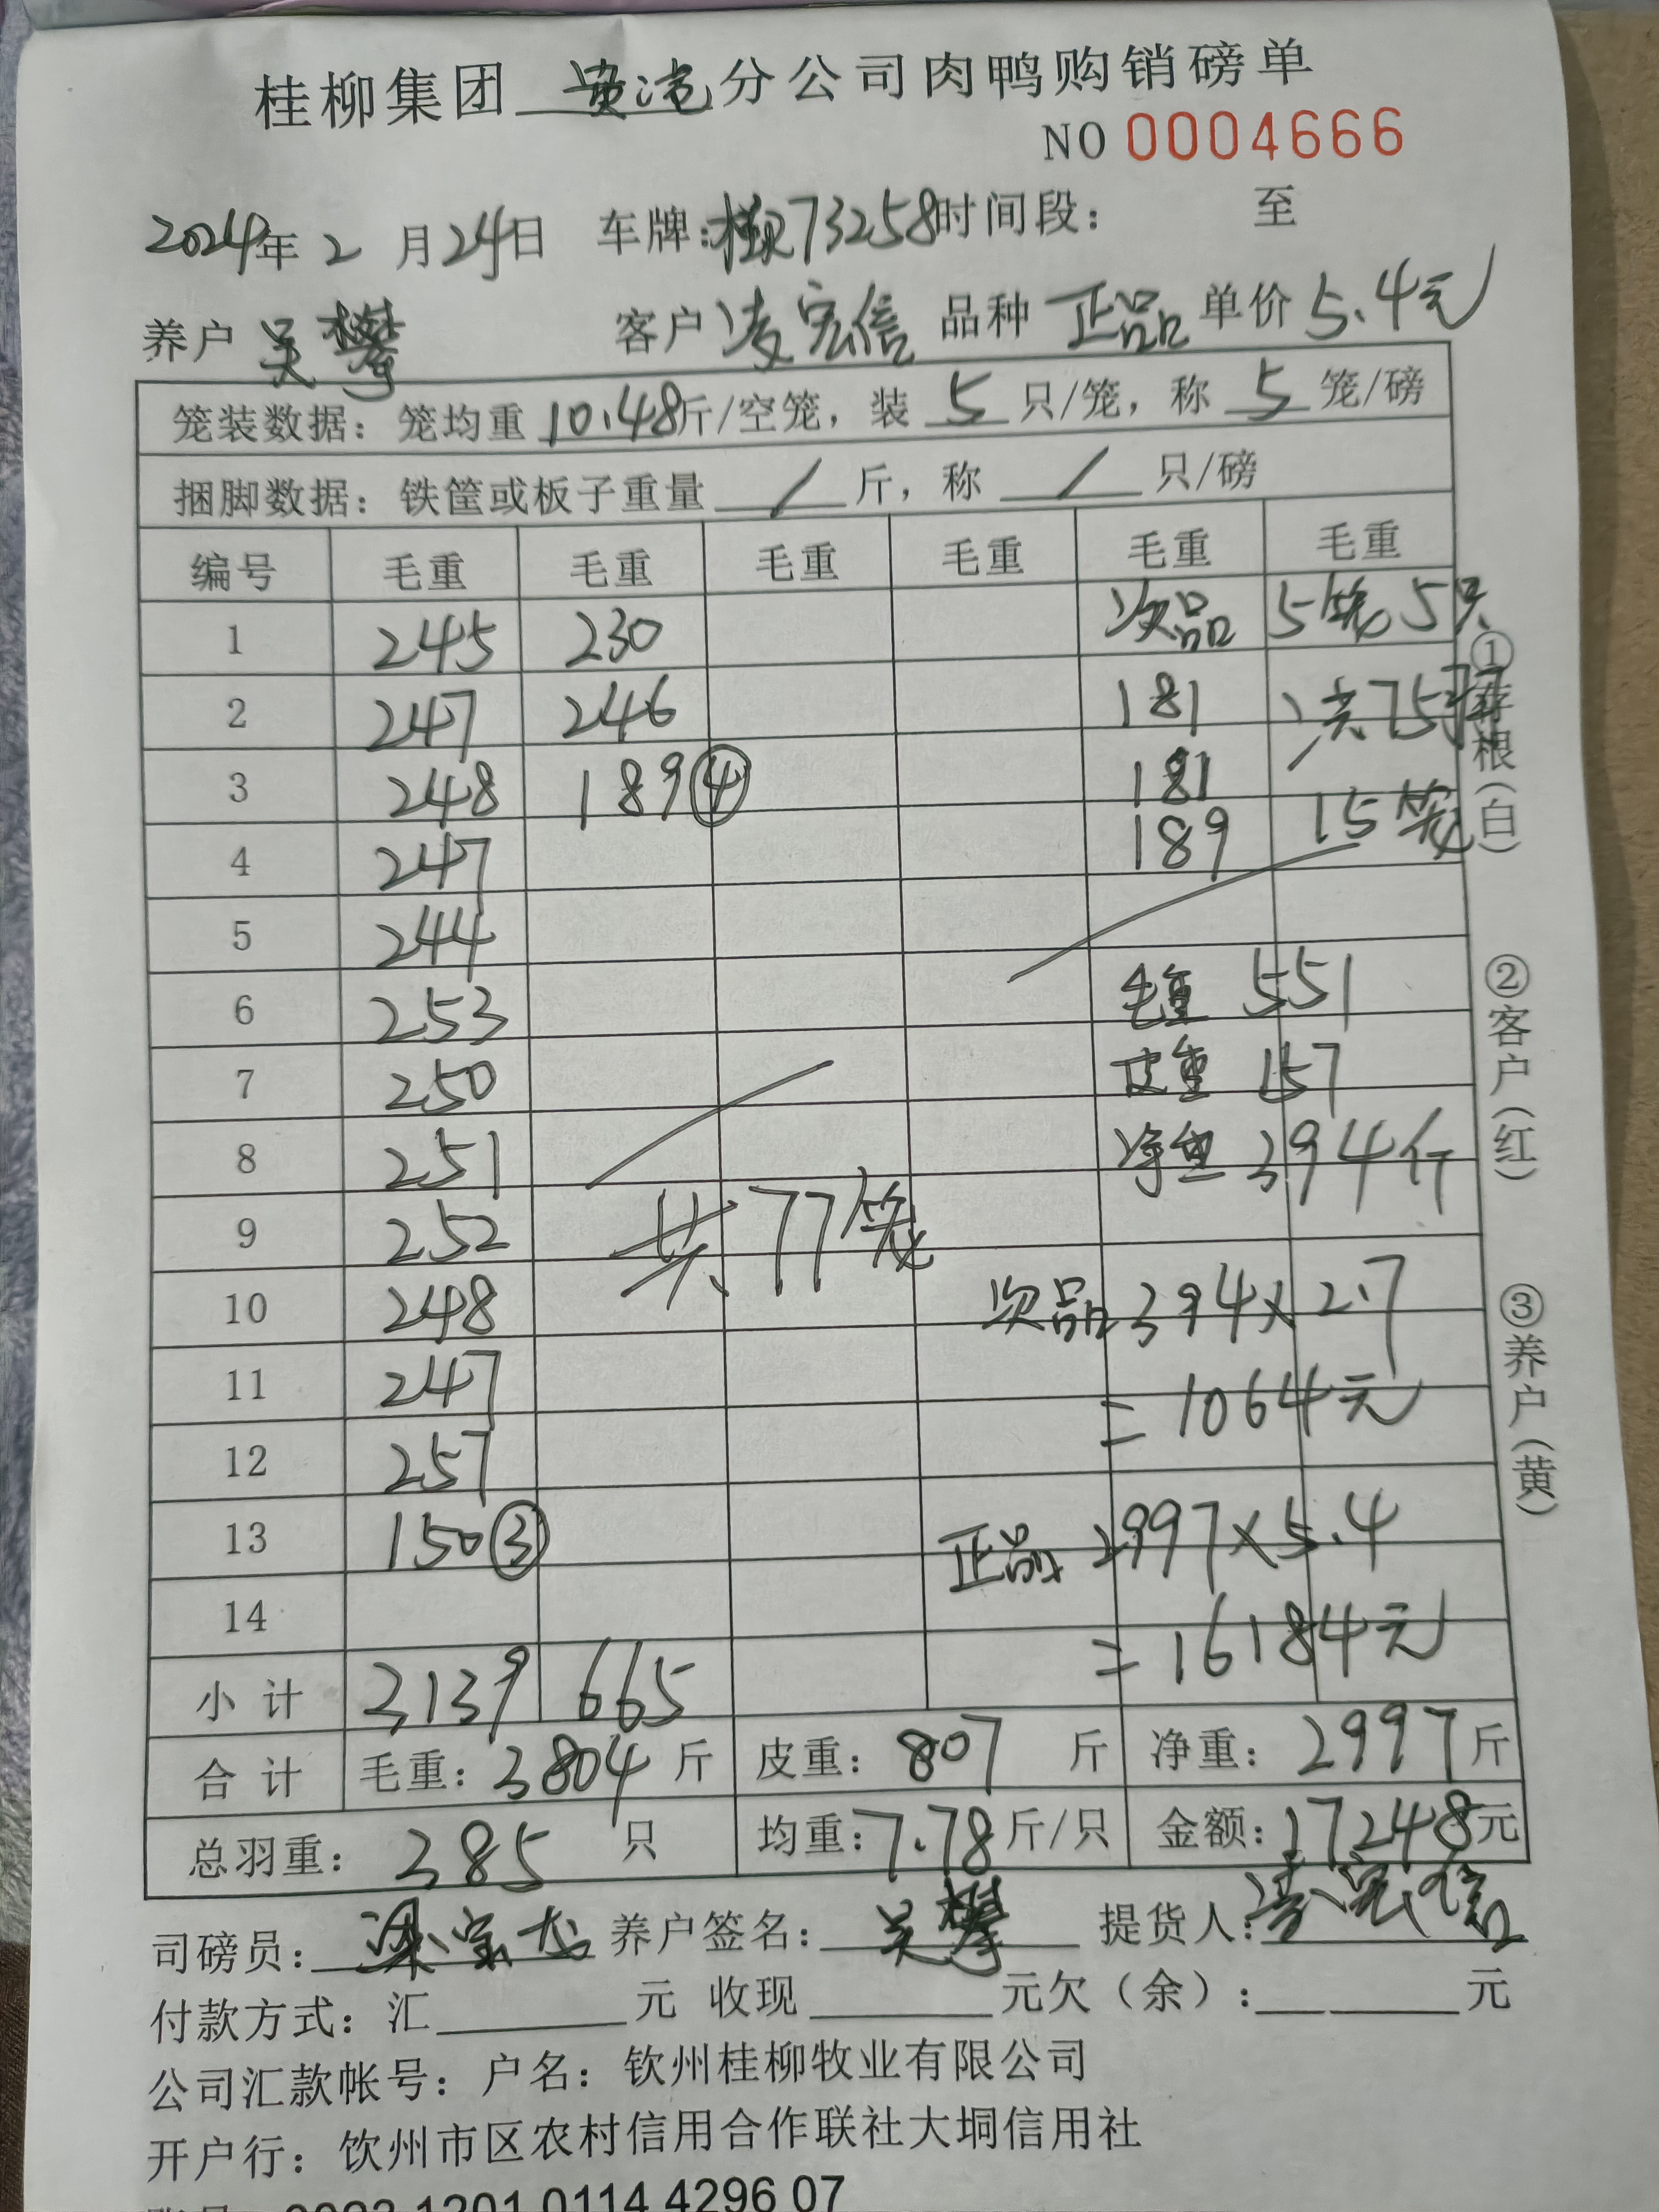 桂柳集团 黄屯 分公司肉鸭购销磅单
NO 0004666
2024年 2 月 24日 车牌:桂R73258 时间段: 至
养户 吴攀 客户 凌宏信 品种 正品 单价 5.4元
笼装数据: 笼均重 10.48斤/空笼, 装 5 只/笼, 称 5 笼/磅
捆脚数据: 铁筐或板子重量 / 斤, 称 / 只/磅
编号 毛重 毛重 毛重 毛重 毛重 毛重
1 245 230 次品 5笼5只
2 247 246 181 共75只
3 248 189④ 181
4 247 189 15笼
5 244
6 253 毛重 551
7 250 皮重 157
8 251 净重 394斤
9 252 共77笼
10 248 次品 394×2.7
11 247 =1064元
12 257
13 150③ 正品 2997×5.4
14 =16184元
小计 3139 665
合计 毛重: 3804 斤 皮重: 807 斤 净重: 2997斤
总羽重: 385 只 均重:7.78斤/只 金额:17248元
司磅员: 梁宝龙 养户签名: 吴攀 提货人: 凌宏信
付款方式: 汇 元 收现 元欠(余): 元
公司汇款帐号: 户名: 钦州桂柳牧业有限公司
开户行: 饮州市区农村信用合作联社大垌信用社
1201 0114 4296 07
①存根(白)
②客户(红)
③养户(黄)